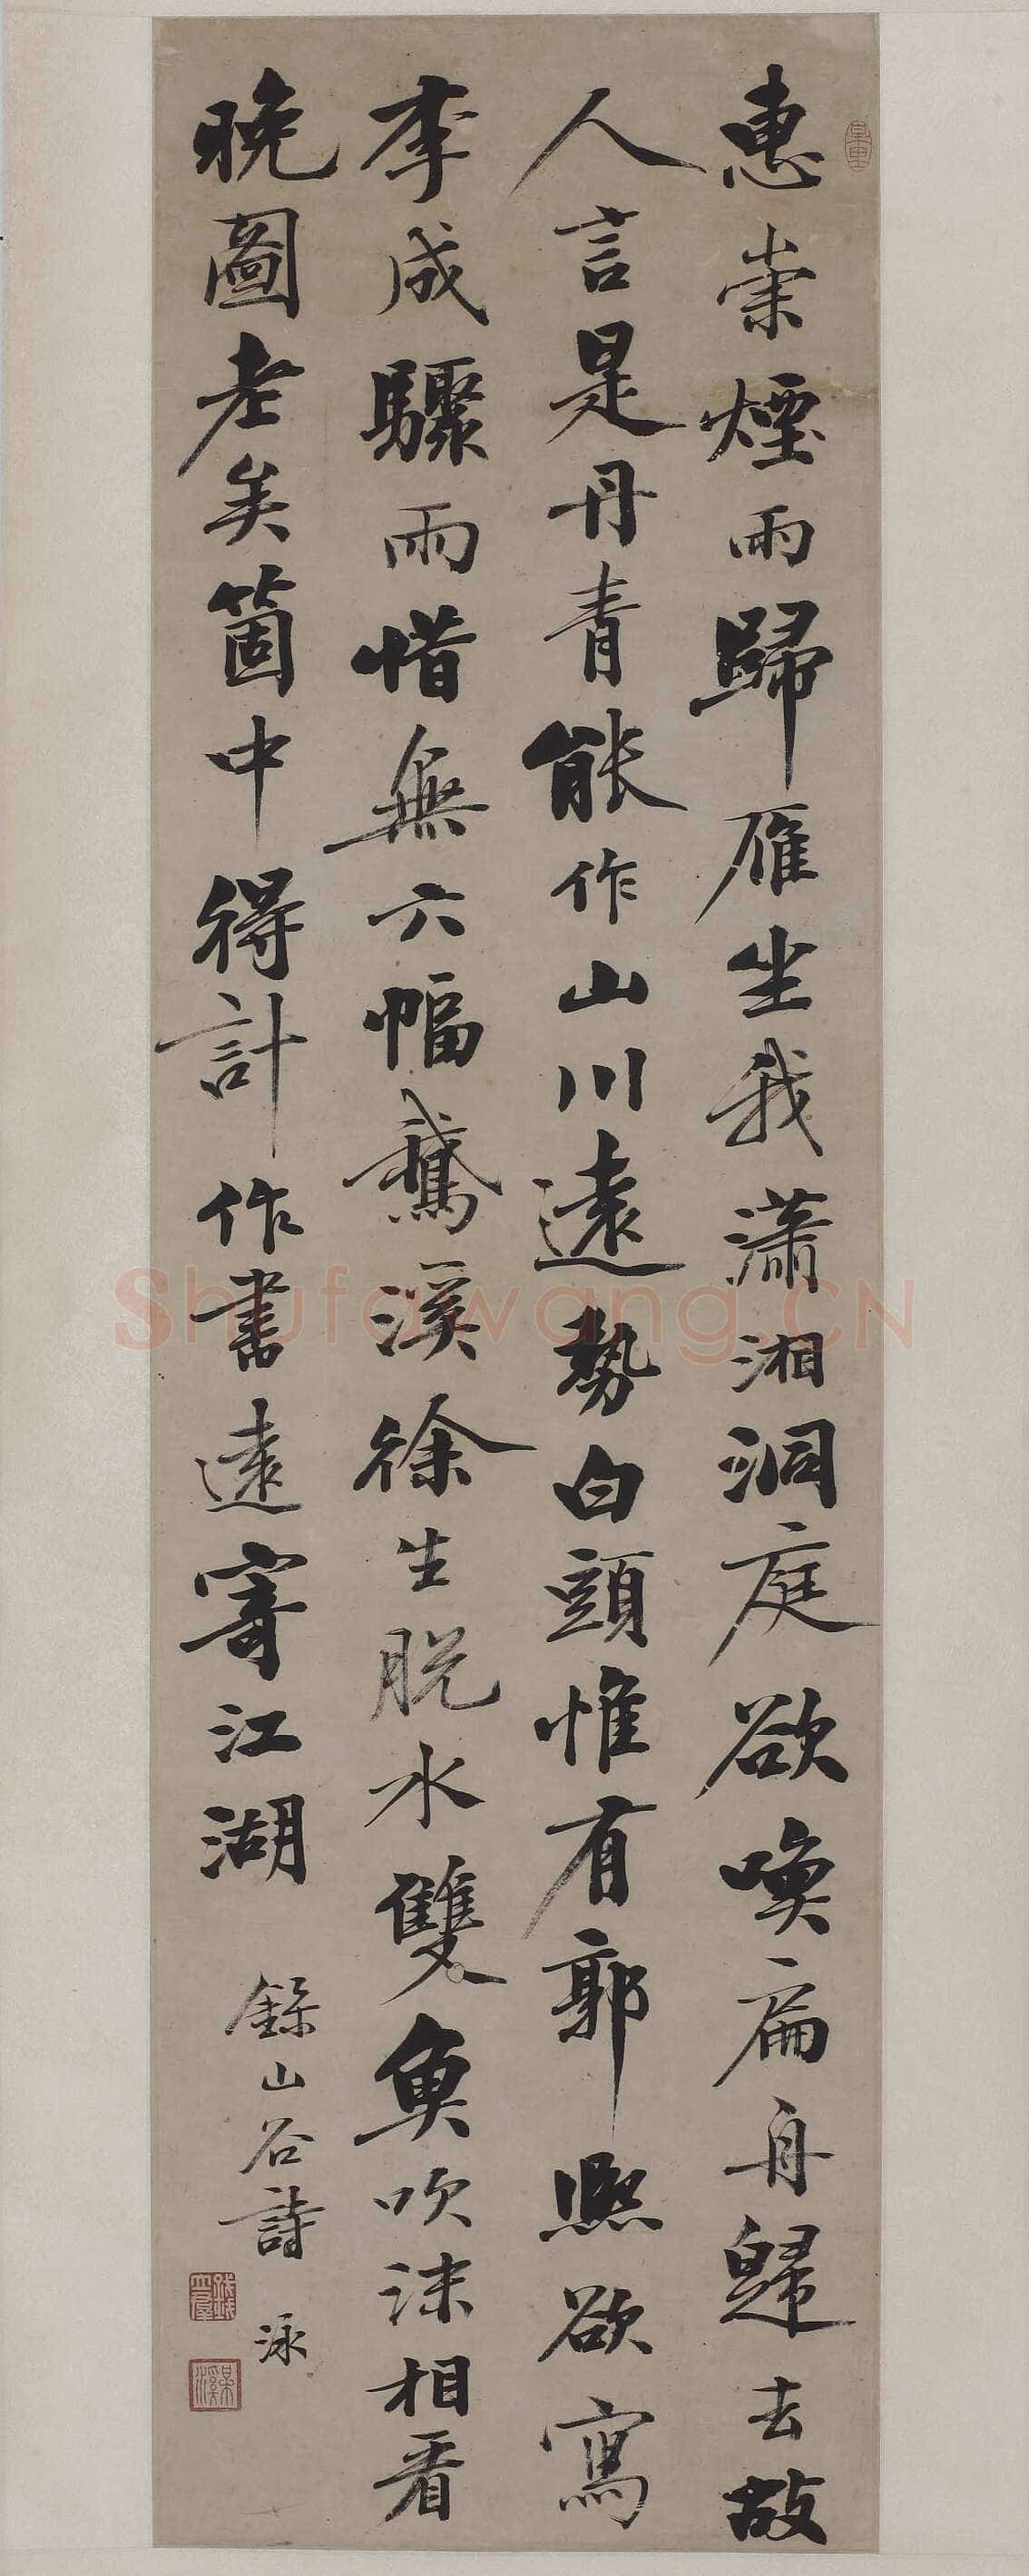 惠崇煙雨歸雁坐我瀟湘洞庭欲喚扁舟歸去故
人言是丹青能作山川遠勢白頭惟有郭熙欲寫
李成驟雨惜無六幅鵞溪徐生脱水雙魚吹沫相看
晚圖老矣箇中得計作書遠寄江湖
錄山谷詩 泳
Shufawang.CN